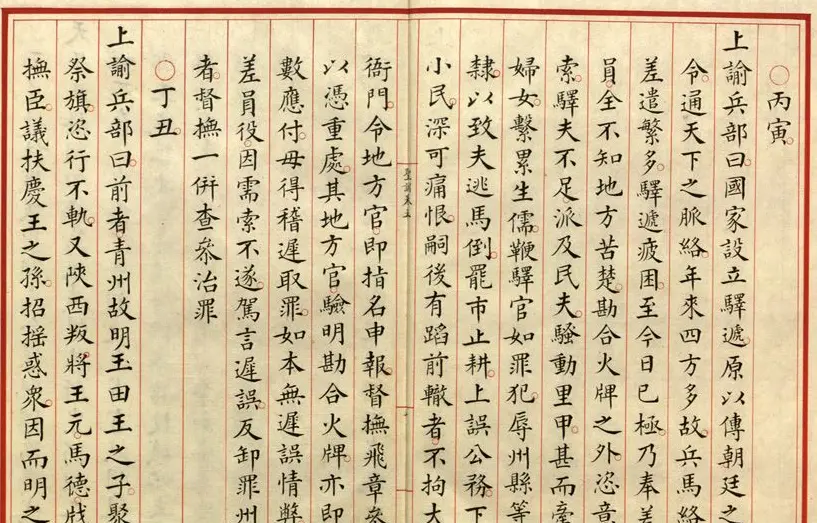 丙寅
上諭兵部曰國家設立驛遞原以傳朝廷之
令通天下之脈絡年來四方多故兵馬絡
差遣繁多驛遞疲困至今日已極乃奉差
員全不知地方苦楚勘合火牌之外恣意
索驛夫不足派及民夫騷動里甲甚而牽
婦女繫累生儒鞭驛官如罪犯辱州縣等
隸以致夫逃馬倒罷市止耕上誤公務下
小民深可痛恨嗣後有蹈前轍者不拘大
聖訓卷五
衙門令地方官即指名申報督撫飛章參
以憑重處其地方官驗明勘合火牌亦即
數應付毋得稽遲取罪如本無遲誤情弊
差員役因需索不遂駕言遲誤反卸罪州
者督撫一併查參治罪
丁丑
上諭兵部曰前者青州故明玉田王之子聚
祭旗恣行不軌又陝西叛將王元馬德戕
撫臣議扶慶王之孫招搖惑衆因而明之